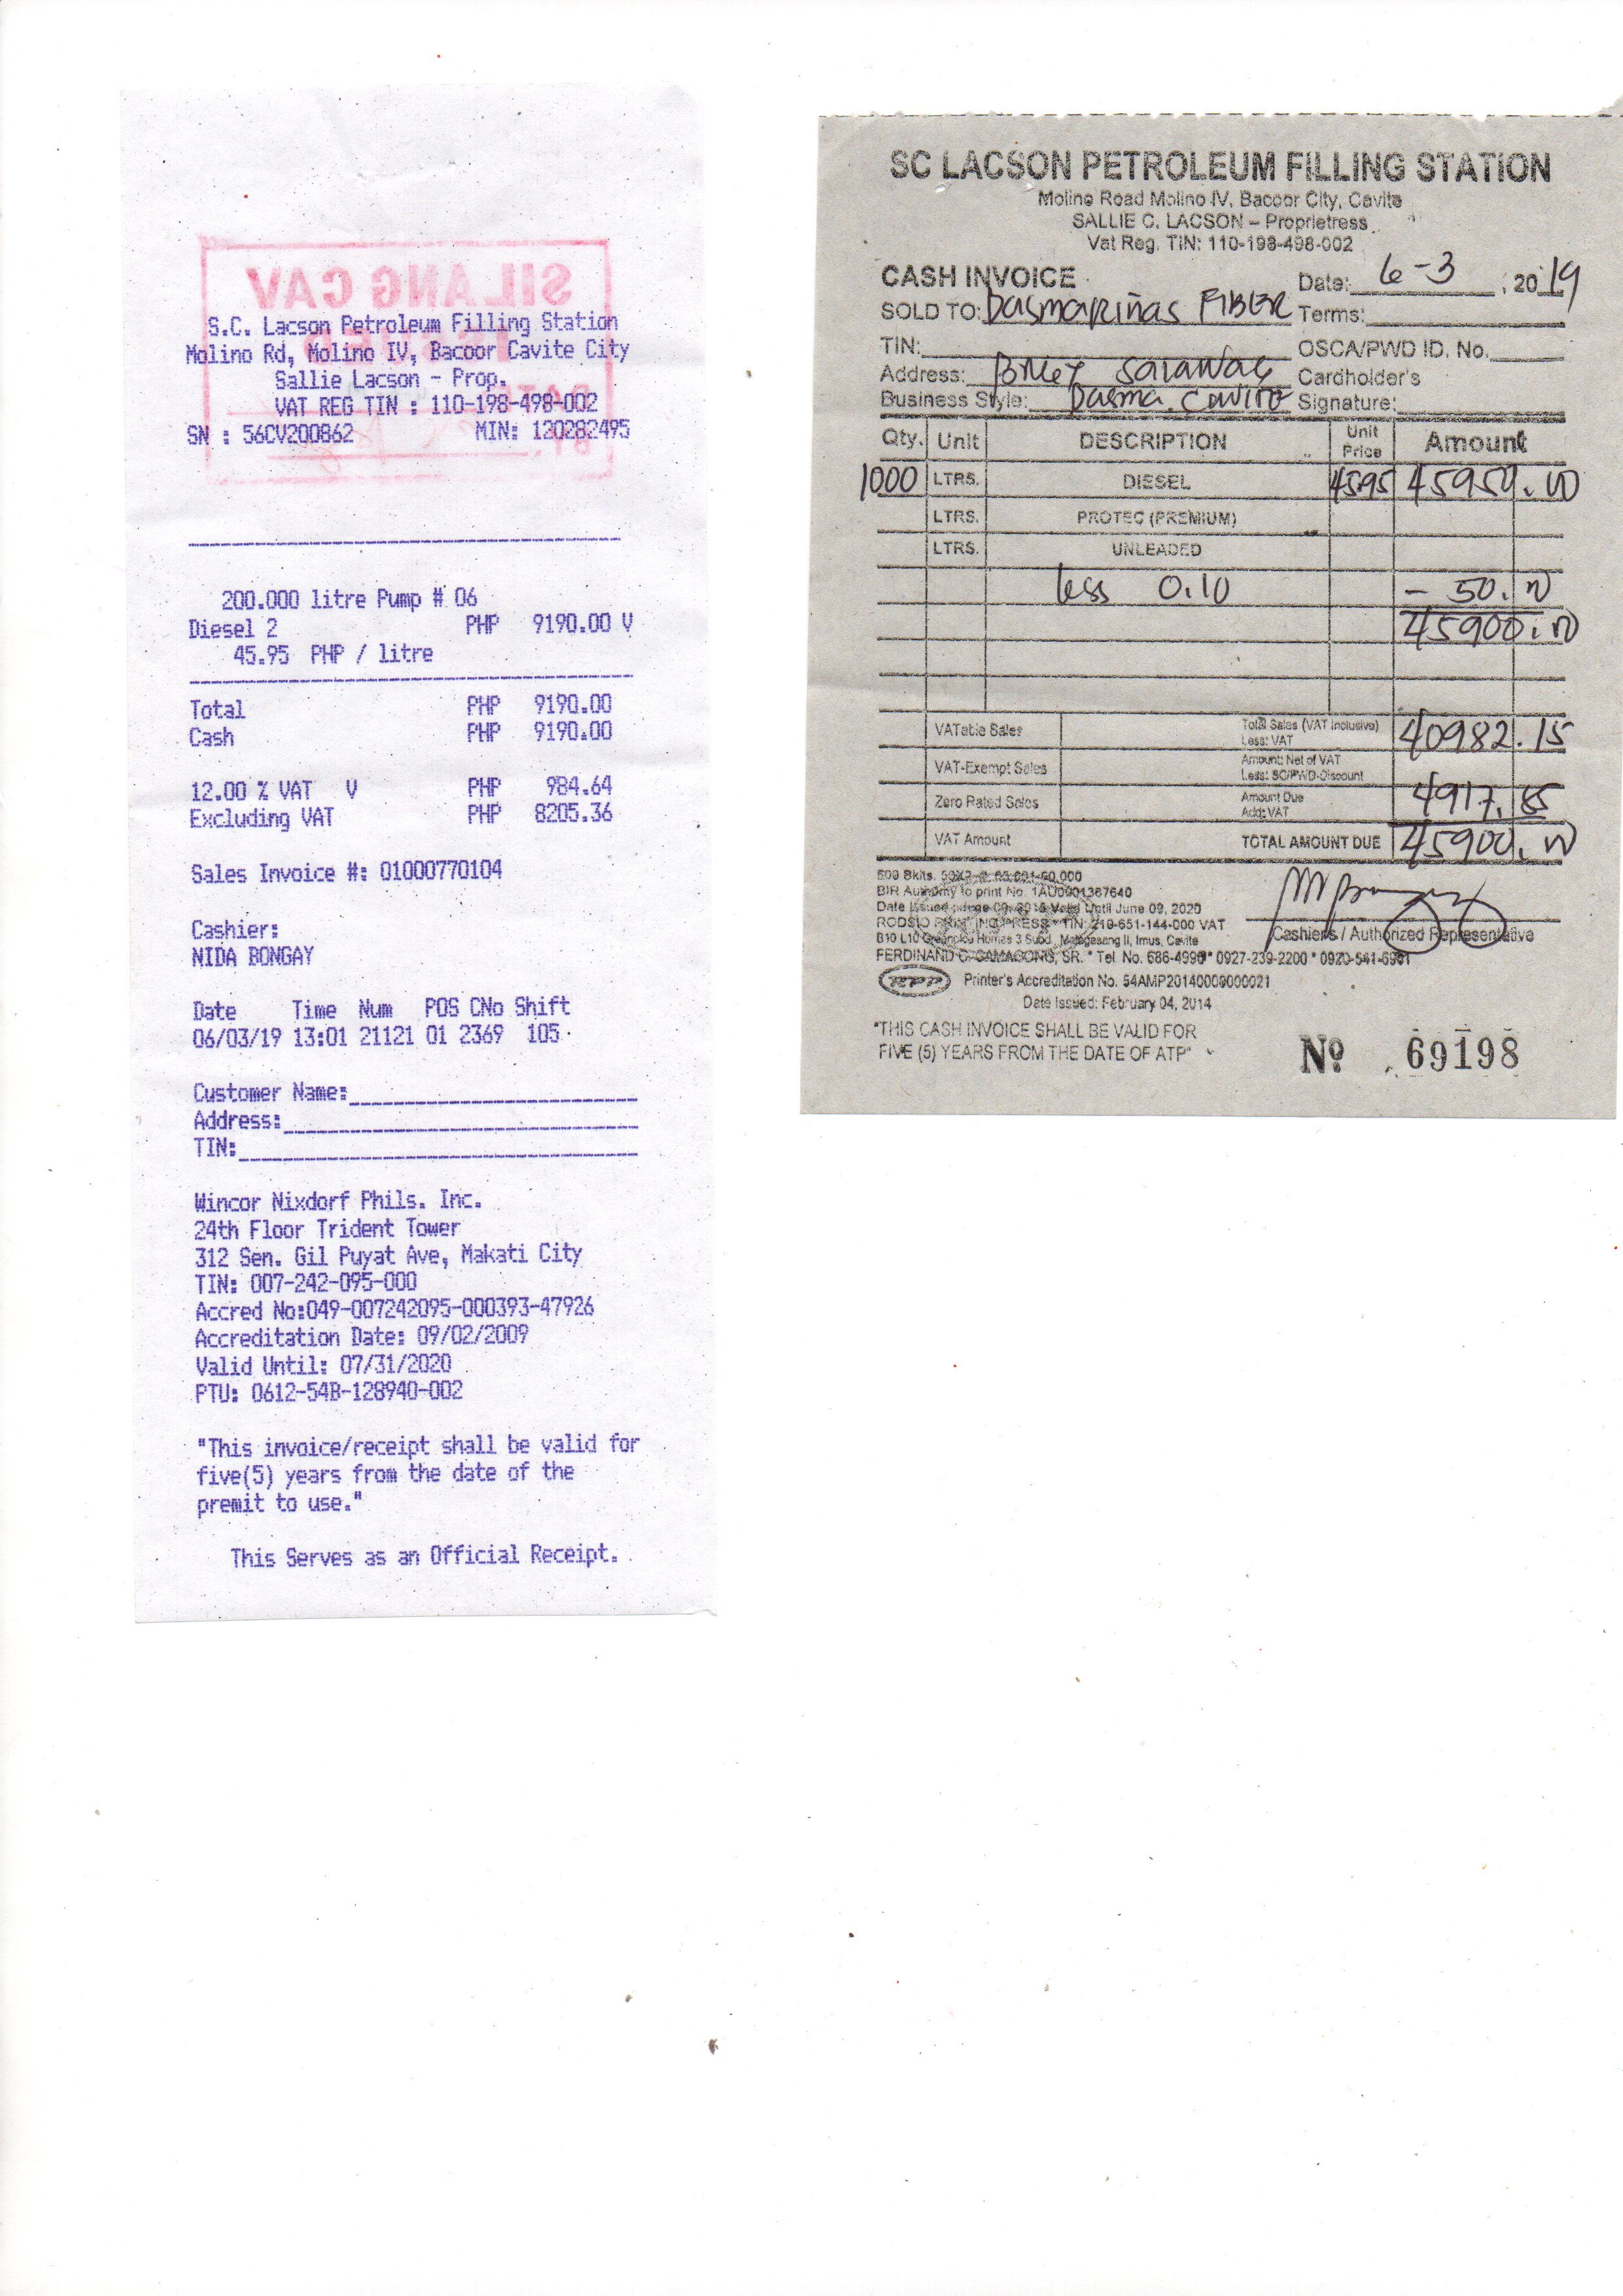 SILANG CAV
S.C. Lacson Petroleum Filling Station
Molino Rd, Molino IV, Bacoor Cavite City
Sallie Lacson - Prop.
VAT REG TIN : 110-198-498-002
SN : 56CV200862 MIN: 120282495
200.000 litre Pump # 06
Diesel 2 PHP 9190.00 V
45.95 PHP / litre
Total PHP 9190.00
Cash PHP 9190.00
12.00 % VAT V PHP 984.64
Excluding VAT PHP 8205.36
Sales Invoice #: 01000770104
Cashier:
NIDA BONGAY
Date Time Num POS CNo Shift
06/03/19 13:01 21121 01 2369 105
Customer Name:
Address:
TIN:
Wincor Nixdorf Phils. Inc.
24th Floor Trident Tower
312 Sen. Gil Puyat Ave, Makati City
TIN: 007-242-095-000
Accred No:049-007242095-000393-47926
Accreditation Date: 09/02/2009
Valid Until: 07/31/2020
PTU: 0612-54B-128940-002
"This invoice/receipt shall be valid for
five(5) years from the date of the
premit to use."
This Serves as an Official Receipt.
SC LACSON PETROLEUM FILLING STATION
Molino Road Molino IV, Bacoor City, Cavite
SALLIE C. LACSON – Proprietress
Vat Reg. TIN: 110-198-498-002
CASH INVOICE Date: 6-3, 2019
SOLD TO: Dasmariñas FIBER Terms:
TIN: OSCA/PWD ID. No.
Address: Cardholder's
Business Style: Dasma. Cavite Signature:
Qty. Unit DESCRIPTION Unit Price Amount
1000 LTRS. DIESEL 45.95
LTRS. PROTEC (PREMIUM)
LTRS. UNLEADED
less 0.10 - 50.00
45900.00
VATable Sales Total Sales (VAT Inclusive) 40982.15
Less: VAT
VAT-Exempt Sales Amount: Net of VAT
Less: SC/PWD-Discount
Zero Rated Sales Amount Due 4917.85
Add: VAT
VAT Amount TOTAL AMOUNT DUE 45900.00
BIR Authority to print No. 1AU0001387640
Valid Until June 09, 2020
TIN: 219-651-144-000 VAT
Imus, Cavite
Cashier's / Authorized Representative
Tel. No. 686-4996 * 0927-239-2200
Printer's Accreditation No. 54AMP20140000000021
Date Issued: February 04, 2014
"THIS CASH INVOICE SHALL BE VALID FOR
FIVE (5) YEARS FROM THE DATE OF ATP"
Nº 69198